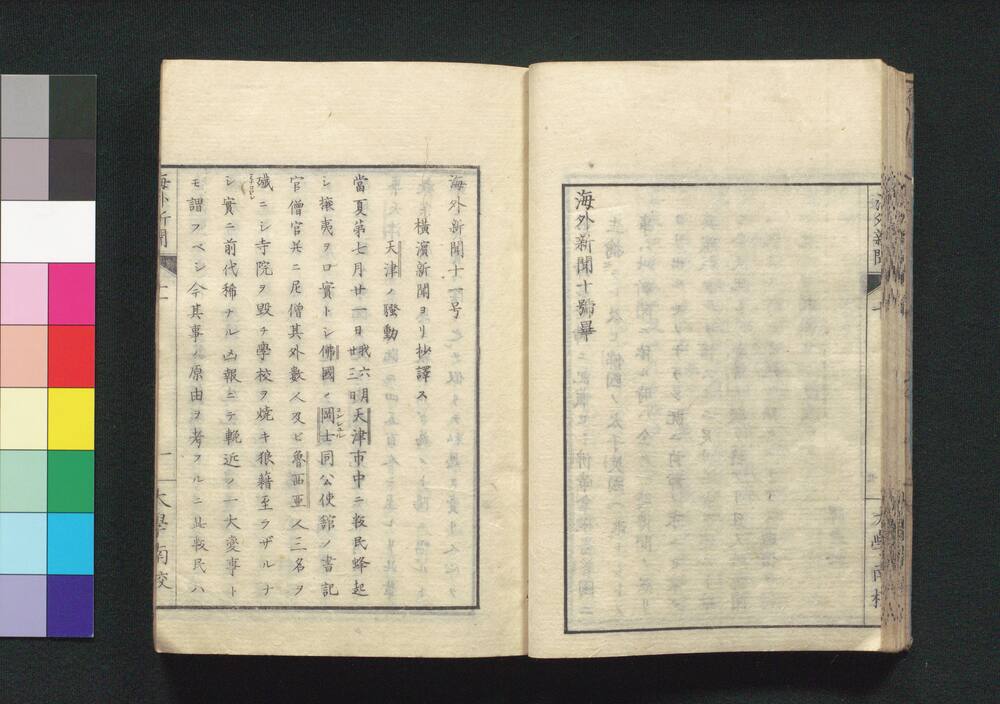 海外新聞
大學南校
海外新聞十號畢
海外新聞十一号
横濱新聞ヨリ抄譯ス
天津ノ騒動
當夏第七月廿一日我六月廿三日天津市中ニ叛民蜂起
シ攘夷ヲ口實トシ佛國ノ岡士コンシユル同公使舘ノ書記
官僧官并ニ尼僧其外數人及ヒ魯西亜人三名ヲ
殲ニシ寺院ヲ毀チ學校ヲ焼キ狼藉至ラザルナ
シ實ニ前代稀ナル凶報ニテ輓近ノ一大変事ト
モ謂フベシ今其事ノ原由ヲ考フルニ其叛民ハ
海外新聞
大學南校